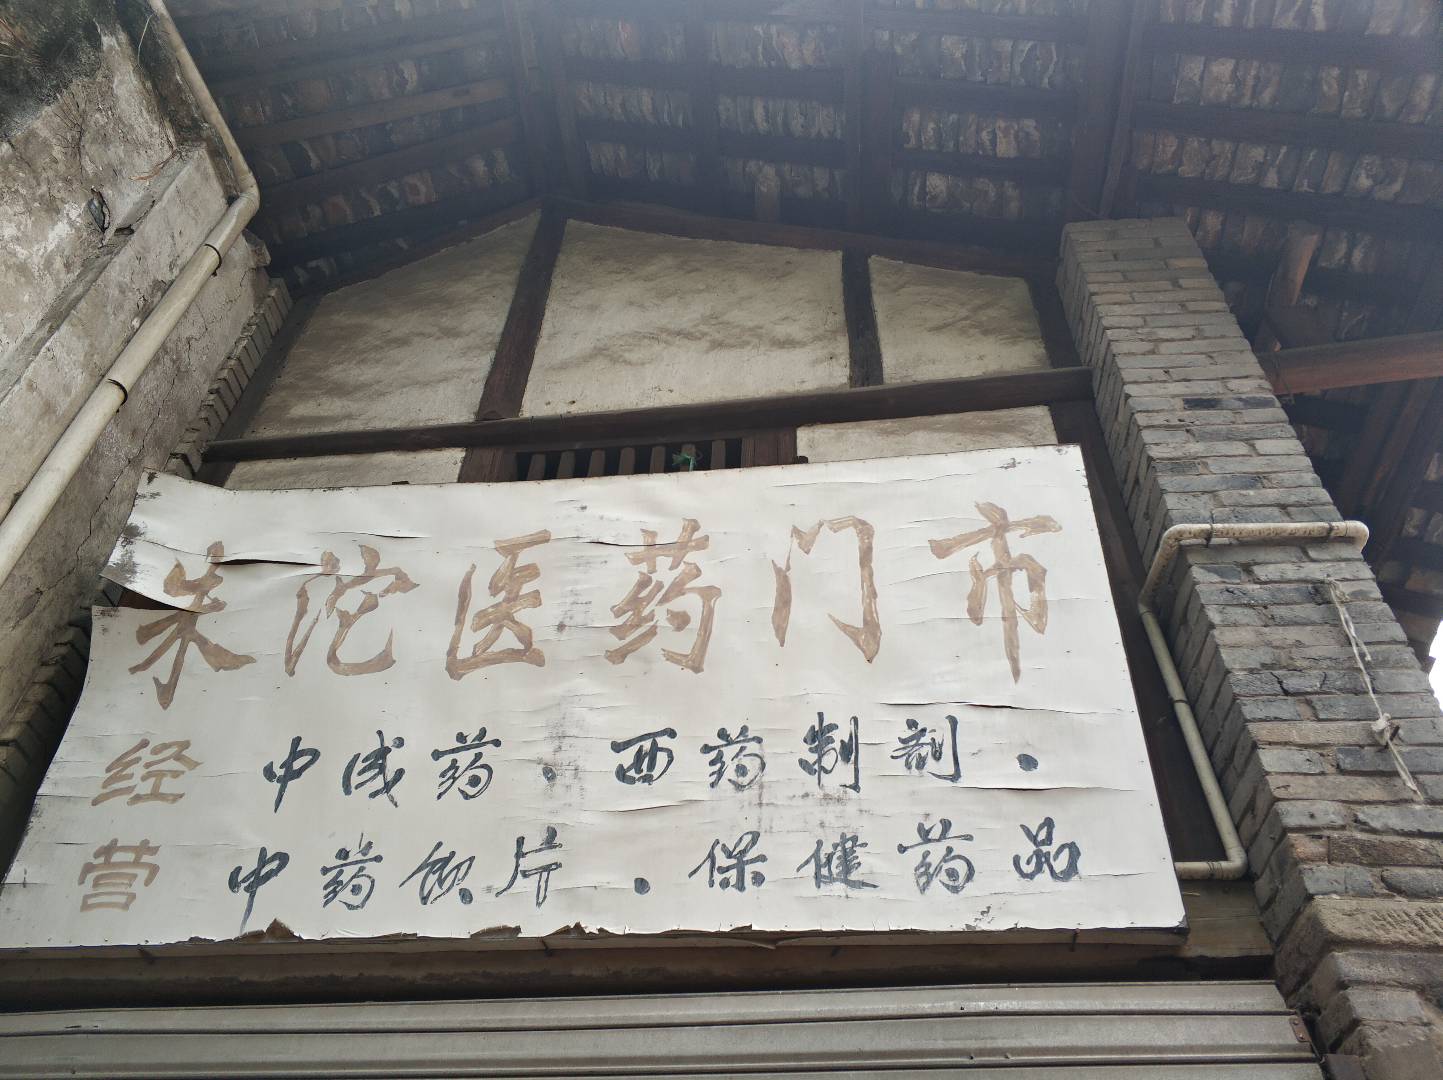 朱沱医药门市
经营 中成药.西药制剂.
中药饮片.保健药品